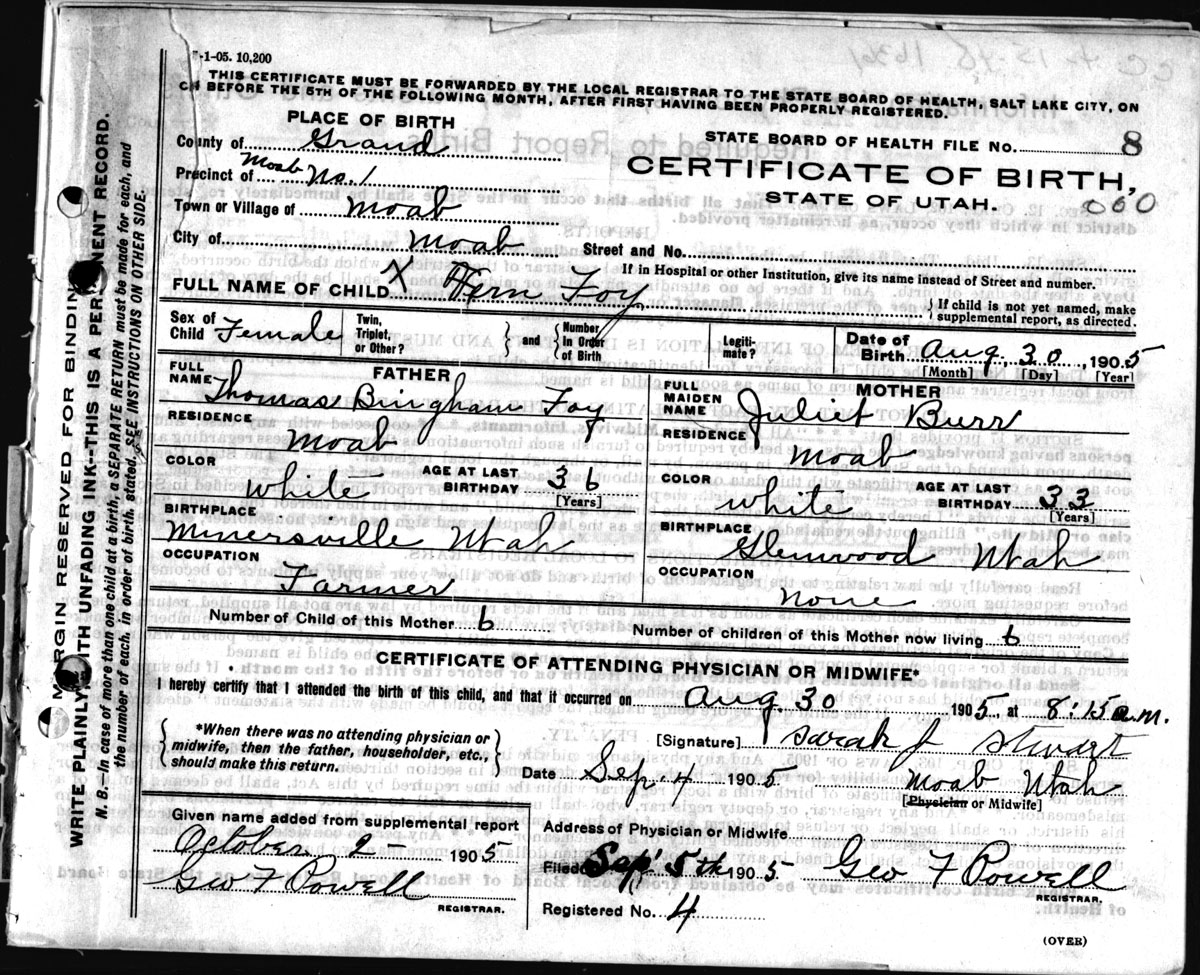 -1-05. 10,200
CC 4-15-48 1634
THIS CERTIFICATE MUST BE FORWARDED BY THE LOCAL REGISTRAR TO THE STATE BOARD OF HEALTH, SALT LAKE CITY, ON
BEFORE THE 5TH OF THE FOLLOWING MONTH, AFTER FIRST HAVING BEEN PROPERLY REGISTERED.
PLACE OF BIRTH
County of Grand
Precinct of Moab No. 1
Town or Village of Moab
City of Moab Street and No.
STATE BOARD OF HEALTH FILE No. 8
CERTIFICATE OF BIRTH,
STATE OF UTAH.
060
If in Hospital or other Institution, give its name instead of Street and number.
FULL NAME OF CHILD X Fern Foy
{ If child is not yet named, make
supplemental report, as directed.
Sex of Child Female
Twin, Triplet, or Other? } and { Number In Order of Birth
Legiti-mate?
Date of Birth Aug. 30, 1905
[Month] [Day] [Year]
FATHER
FULL NAME Thomas Bingham Foy
RESIDENCE Moab
COLOR White AGE AT LAST BIRTHDAY 36
[Years]
BIRTHPLACE Minersville Utah
OCCUPATION Farmer
MOTHER
FULL MAIDEN NAME Juliet Burr
RESIDENCE Moab
COLOR White AGE AT LAST BIRTHDAY 33
[Years]
BIRTHPLACE Glenwood Utah
OCCUPATION None
Number of Child of this Mother 6 Number of children of this Mother now living 6
CERTIFICATE OF ATTENDING PHYSICIAN OR MIDWIFE*
I hereby certify that I attended the birth of this child, and that it occurred on Aug. 30 1905, at 8:15 a.m.
{ *When there was no attending physician or
midwife, then the father, householder, etc.,
should make this return. }
[Signature] Sarah J Stewart
Date Sep. 4 1905 Moab Utah
[Physician or Midwife]
Given name added from supplemental report
October 2- 1905
Geo F Powell
REGISTRAR.
Address of Physician or Midwife
Filed Sep' 5th 1905 Geo F Powell
REGISTRAR.
Registered No. 4
(OVER)
MARGIN RESERVED FOR BINDING
WRITE PLAINLY WITH UNFADING INK--THIS IS A PERMANENT RECORD.
N. B.--In case of more than one child at a birth, a SEPARATE RETURN must be made for each, and
the number of each, in order of birth, stated. SEE INSTRUCTIONS ON OTHER SIDE.